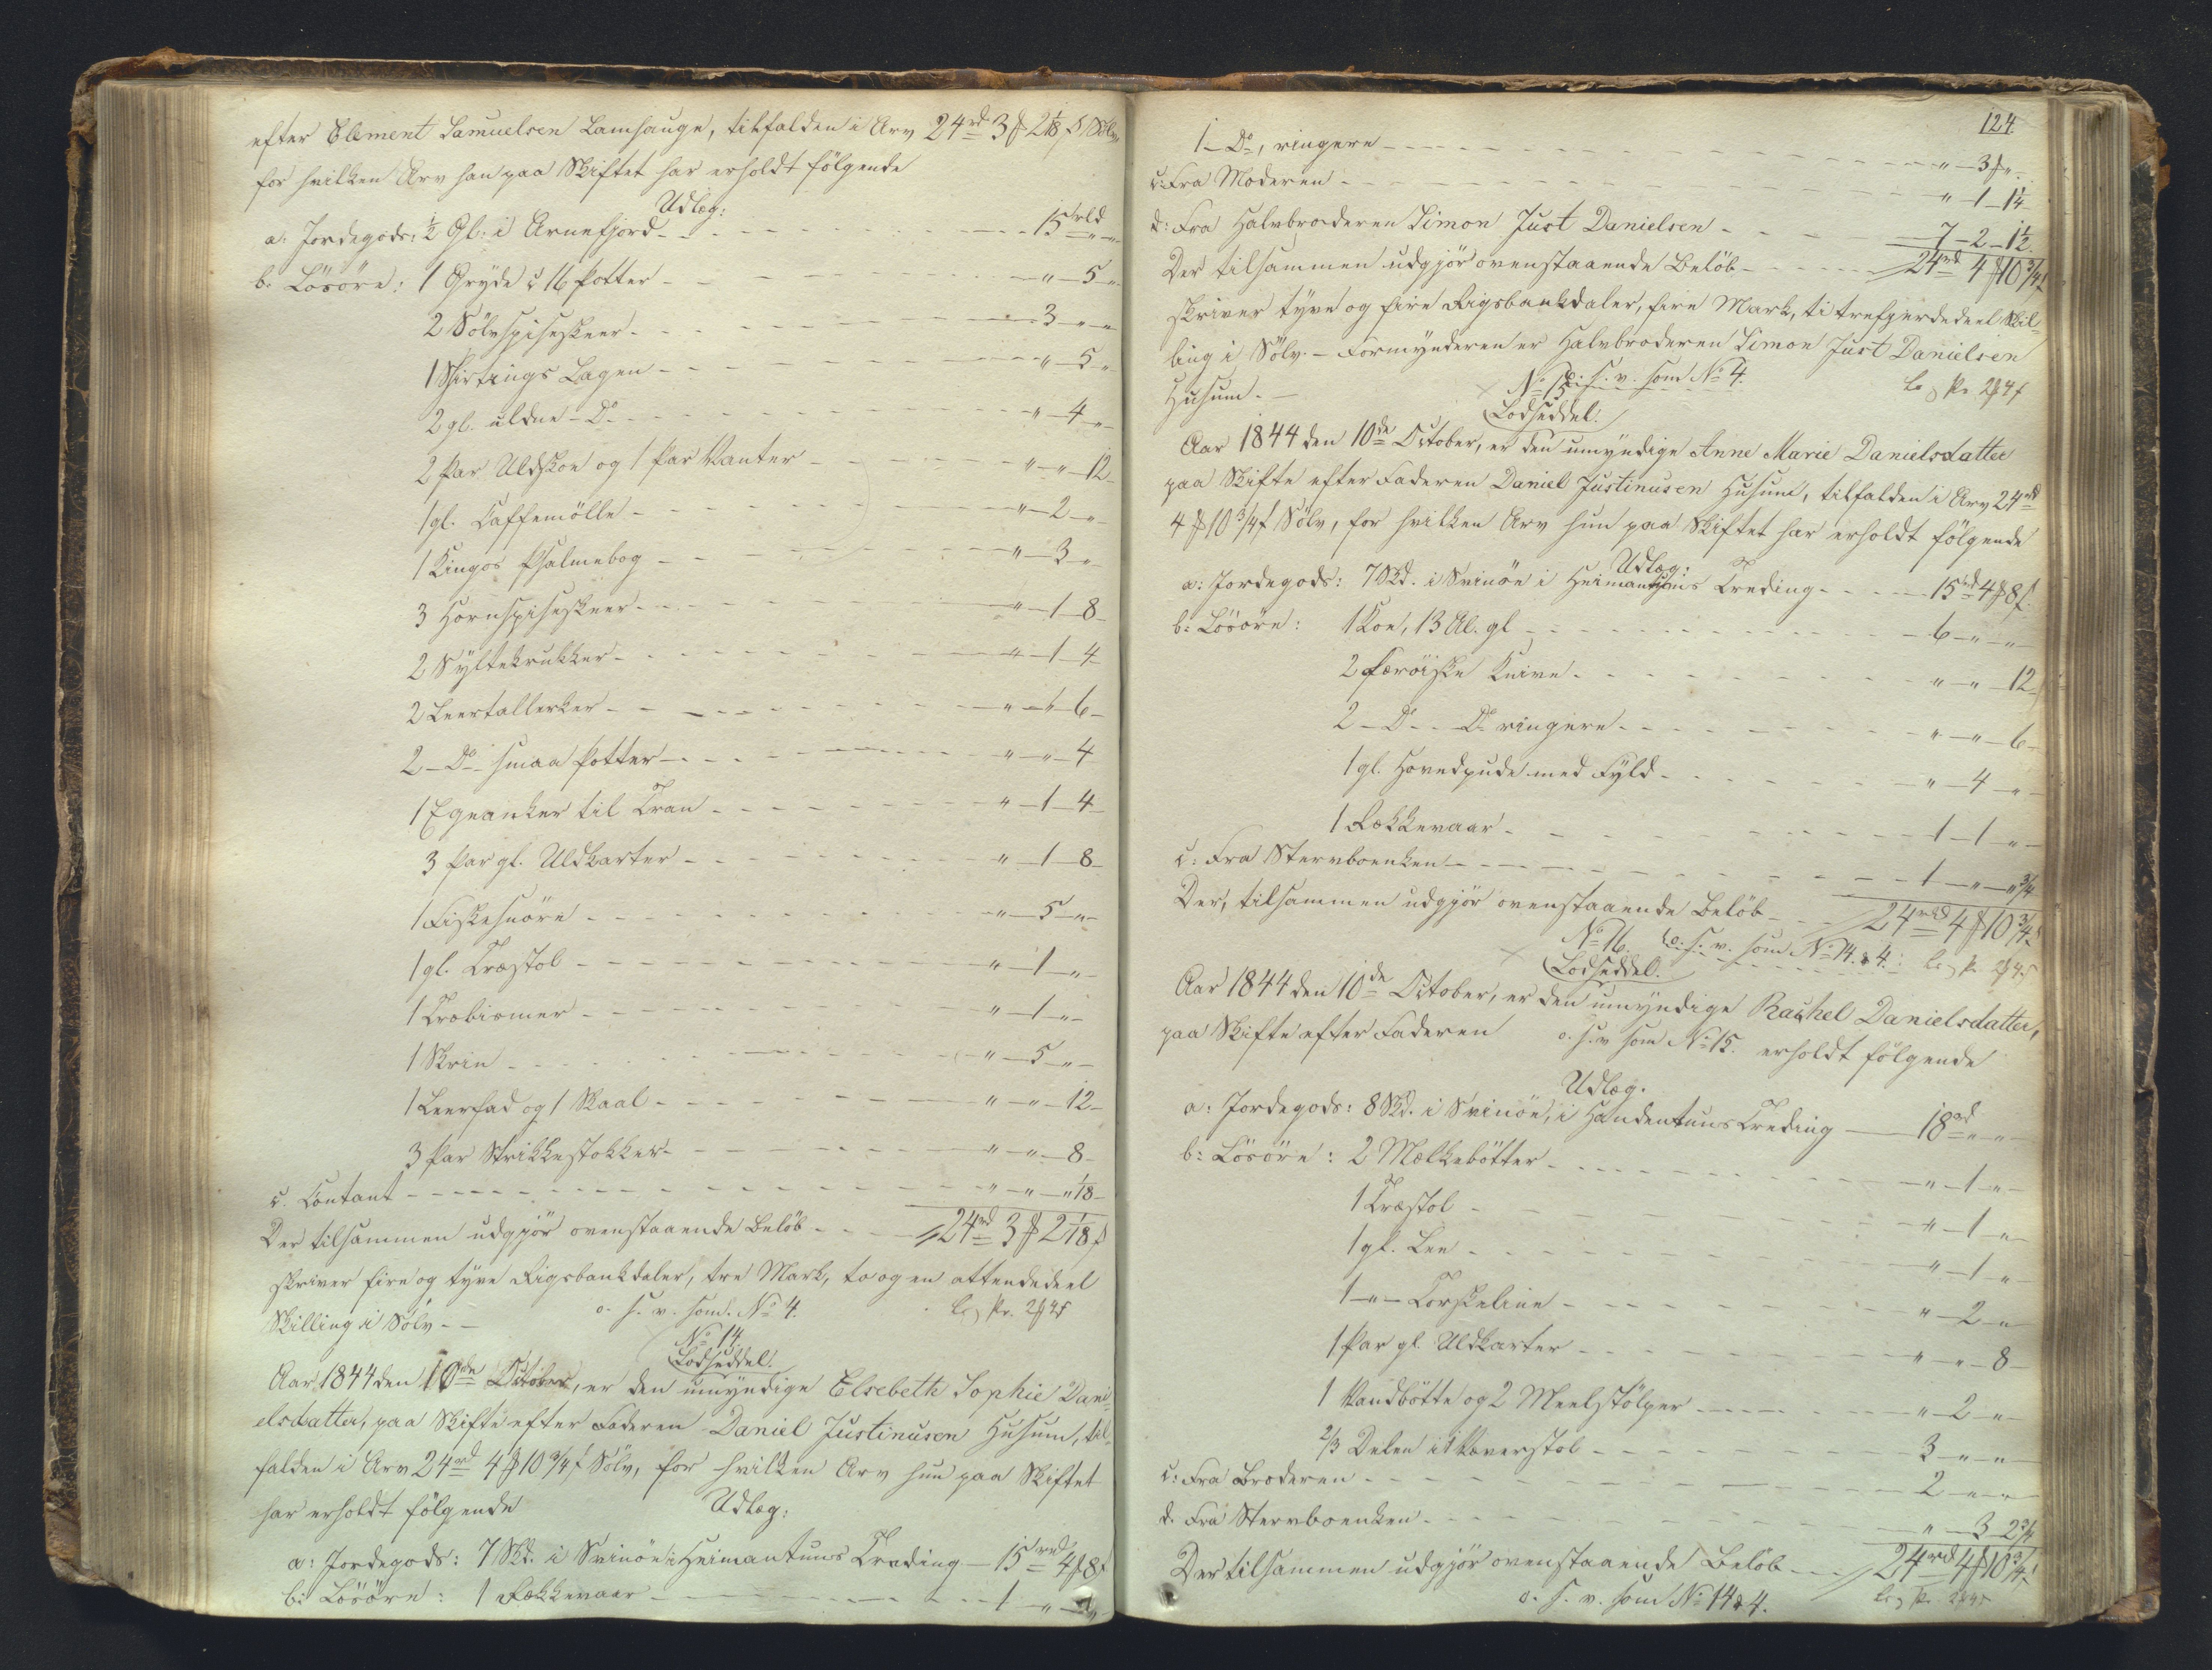 efter Clement Samuelsen Lamhauge, tilfalden i Arv 24rd 3 ₰ 2 1/18 ß Sölv,
for hvilken Arv han paa Skiftet har erholdt fölgende
Udlæg:
a: Jordegods: 1/2 Gl: i Arnefjord - - - 15 rbd " "
b. Lösöre: 1 Gryde à 16 Potter - - - " 5 "
2 Sölvspiseskeer - - - 3 " "
1 Skirtings Lagen - - - " 5 "
2 gl. uldne - Do - - - " 4 "
2 Par Uldskoe og 1 Par Vanter - - - " " 12
1 gl. Caffemölle - - - " 2 "
1 Kingos Psalmebog - - - " 3 "
3 Hornspiseskeer - - - " 1 8
2 Syltekrukker - - - " 1 4
2 Leertallerker - - - " " 6
2 - Do smaa Potter - - - " " 4
1 Egeanker til Tran - - - " 1 4
3 Par gl. Uldkarter - - - " 1 8
1 Fiskesnöre - - - " 5 "
1 gl. Træstol - - - " 1 "
1 Træbismer - - - " 1 "
1 Skrin - - - " 5 "
1 Leerfad og 1 Skaal - - - " " 12
3 Par Strikkestokker - - - " " 8
c. Contant - - - " " " 1/18
Der tilsammen udgjör ovenstaaende Belöb - - - 24rd 3 ₰ 2 1/18 ß
skriver fire og tyve Rigsbankdaler, tre Mark, to og en attendedeel
Skilling i Sölv. - o. s. v. som No 4.
No 14.
Lodseddel.
Aar 1844 den 10de October, er den umyndige Elsebeth Sophie Dani-
elsdatter, paa Skifte efter Faderen Daniel Justinusen Husum, til-
falden i Arv 24rd 4 ₰ 10 3/4 ß Sölv, for hvilken Arv hun paa Skiftet
har erholdt fölgende Udlæg:
a: Jordegods: 7 Skd. i Svinöe i Heimantuns Treding - 15 rd 4 ₰ 8 ß
b: Lösöre: 1 Rokkevaar - - - 1 " "
124.
1 - Do, ringere - - - " 3 ₰ "
c: Fra Moderen - - - " 1 1 1/4
d: Fra Halvbroderen Simon Just Danielsen - - - 7 2 1 1/2
Der tilsammen udgjör ovenstaaende Belöb - - - 24rd 4 ₰ 10 3/4 ß
skriver tyve og fire Rigsbankdaler, fire Mark, ti trefjerdedeel Skil-
ling i Sölv. - Formynderen er Halvbroderen Simon Just Danielsen
Husum. - o. s. v. som No 4.
No 15.
Lodseddel.
Aar 1844 den 10de October, er den umyndige Anne Marie Danielsdatter
paa Skifte efter Faderen Daniel Justinusen Husum, tilfalden i Arv 24rd
4 ₰ 10 3/4 ß Sölv, for hvilken Arv hun paa Skiftet har erholdt fölgende
Udlæg:
a: Jordegods: 7 Skd. i Svinöe i Heimantuns Treding - - - 15 rd 4 ₰ 8 ß
b: Lösöre: 1 Koe, 13 Al. gl - - - 6 " "
2 færöiske Knive - - - " " 12
2 - Do - Do ringere - - - " " 6
1 gl. Hovedpude med Fyld - - - " 4 "
1 Rokkevaar - - - 1 1 "
c: Fra Stervboenken - - - 1 " " 3/4
Der, tilsammen udgjör ovenstaaende Belöb - - - 24rd 4 ₰ 10 3/4 ß
o. s. v. som No 14 & 4.
No 16.
Lodseddel.
Aar 1844 den 10de October, er den umyndige Rachel Danielsdatter,
paa Skifte efter Faderen o. s. v. som No 15. erholdt fölgende
Udlæg.
a: Jordegods: 8 Skd. i Svinöe, i Handentuns Treding - 18 rd " "
b: Lösöre: 2 Mælkebötter - - - " 1 "
1 Træstol - - - " 1 "
1 gl. Lee - - - " 1 "
1 - " - Torskeline - - - " 2 "
1 Par gl. Uldkarter - - - " " 8
1 Vandbötte og 2 Meelstölper - - - " 2 "
2/3 Delen i 1 Væverstol - - - 3 " "
c: Fra Broderen - - - 2 " "
d. Fra Stervboenken - - - " 3 2 3/4
Der tilsammen udgjör ovenstaaende Belöb - - - 24rd 4 ₰ 10 3/4 ß
o. s. v. som No 14 & 4.